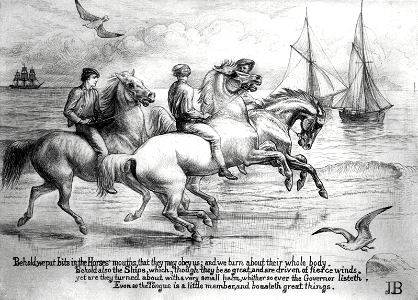 Behold, we put bits in the Horses mouths, that they may obey us; and we turn about their whole body.
Behold also the Ships, which, though they be so great, and are driven of fierce winds,
yet are they turned about with a very small helm, whithersoever the Governor listeth.
Even so the tongue is a little member, and boasteth great things.
JB